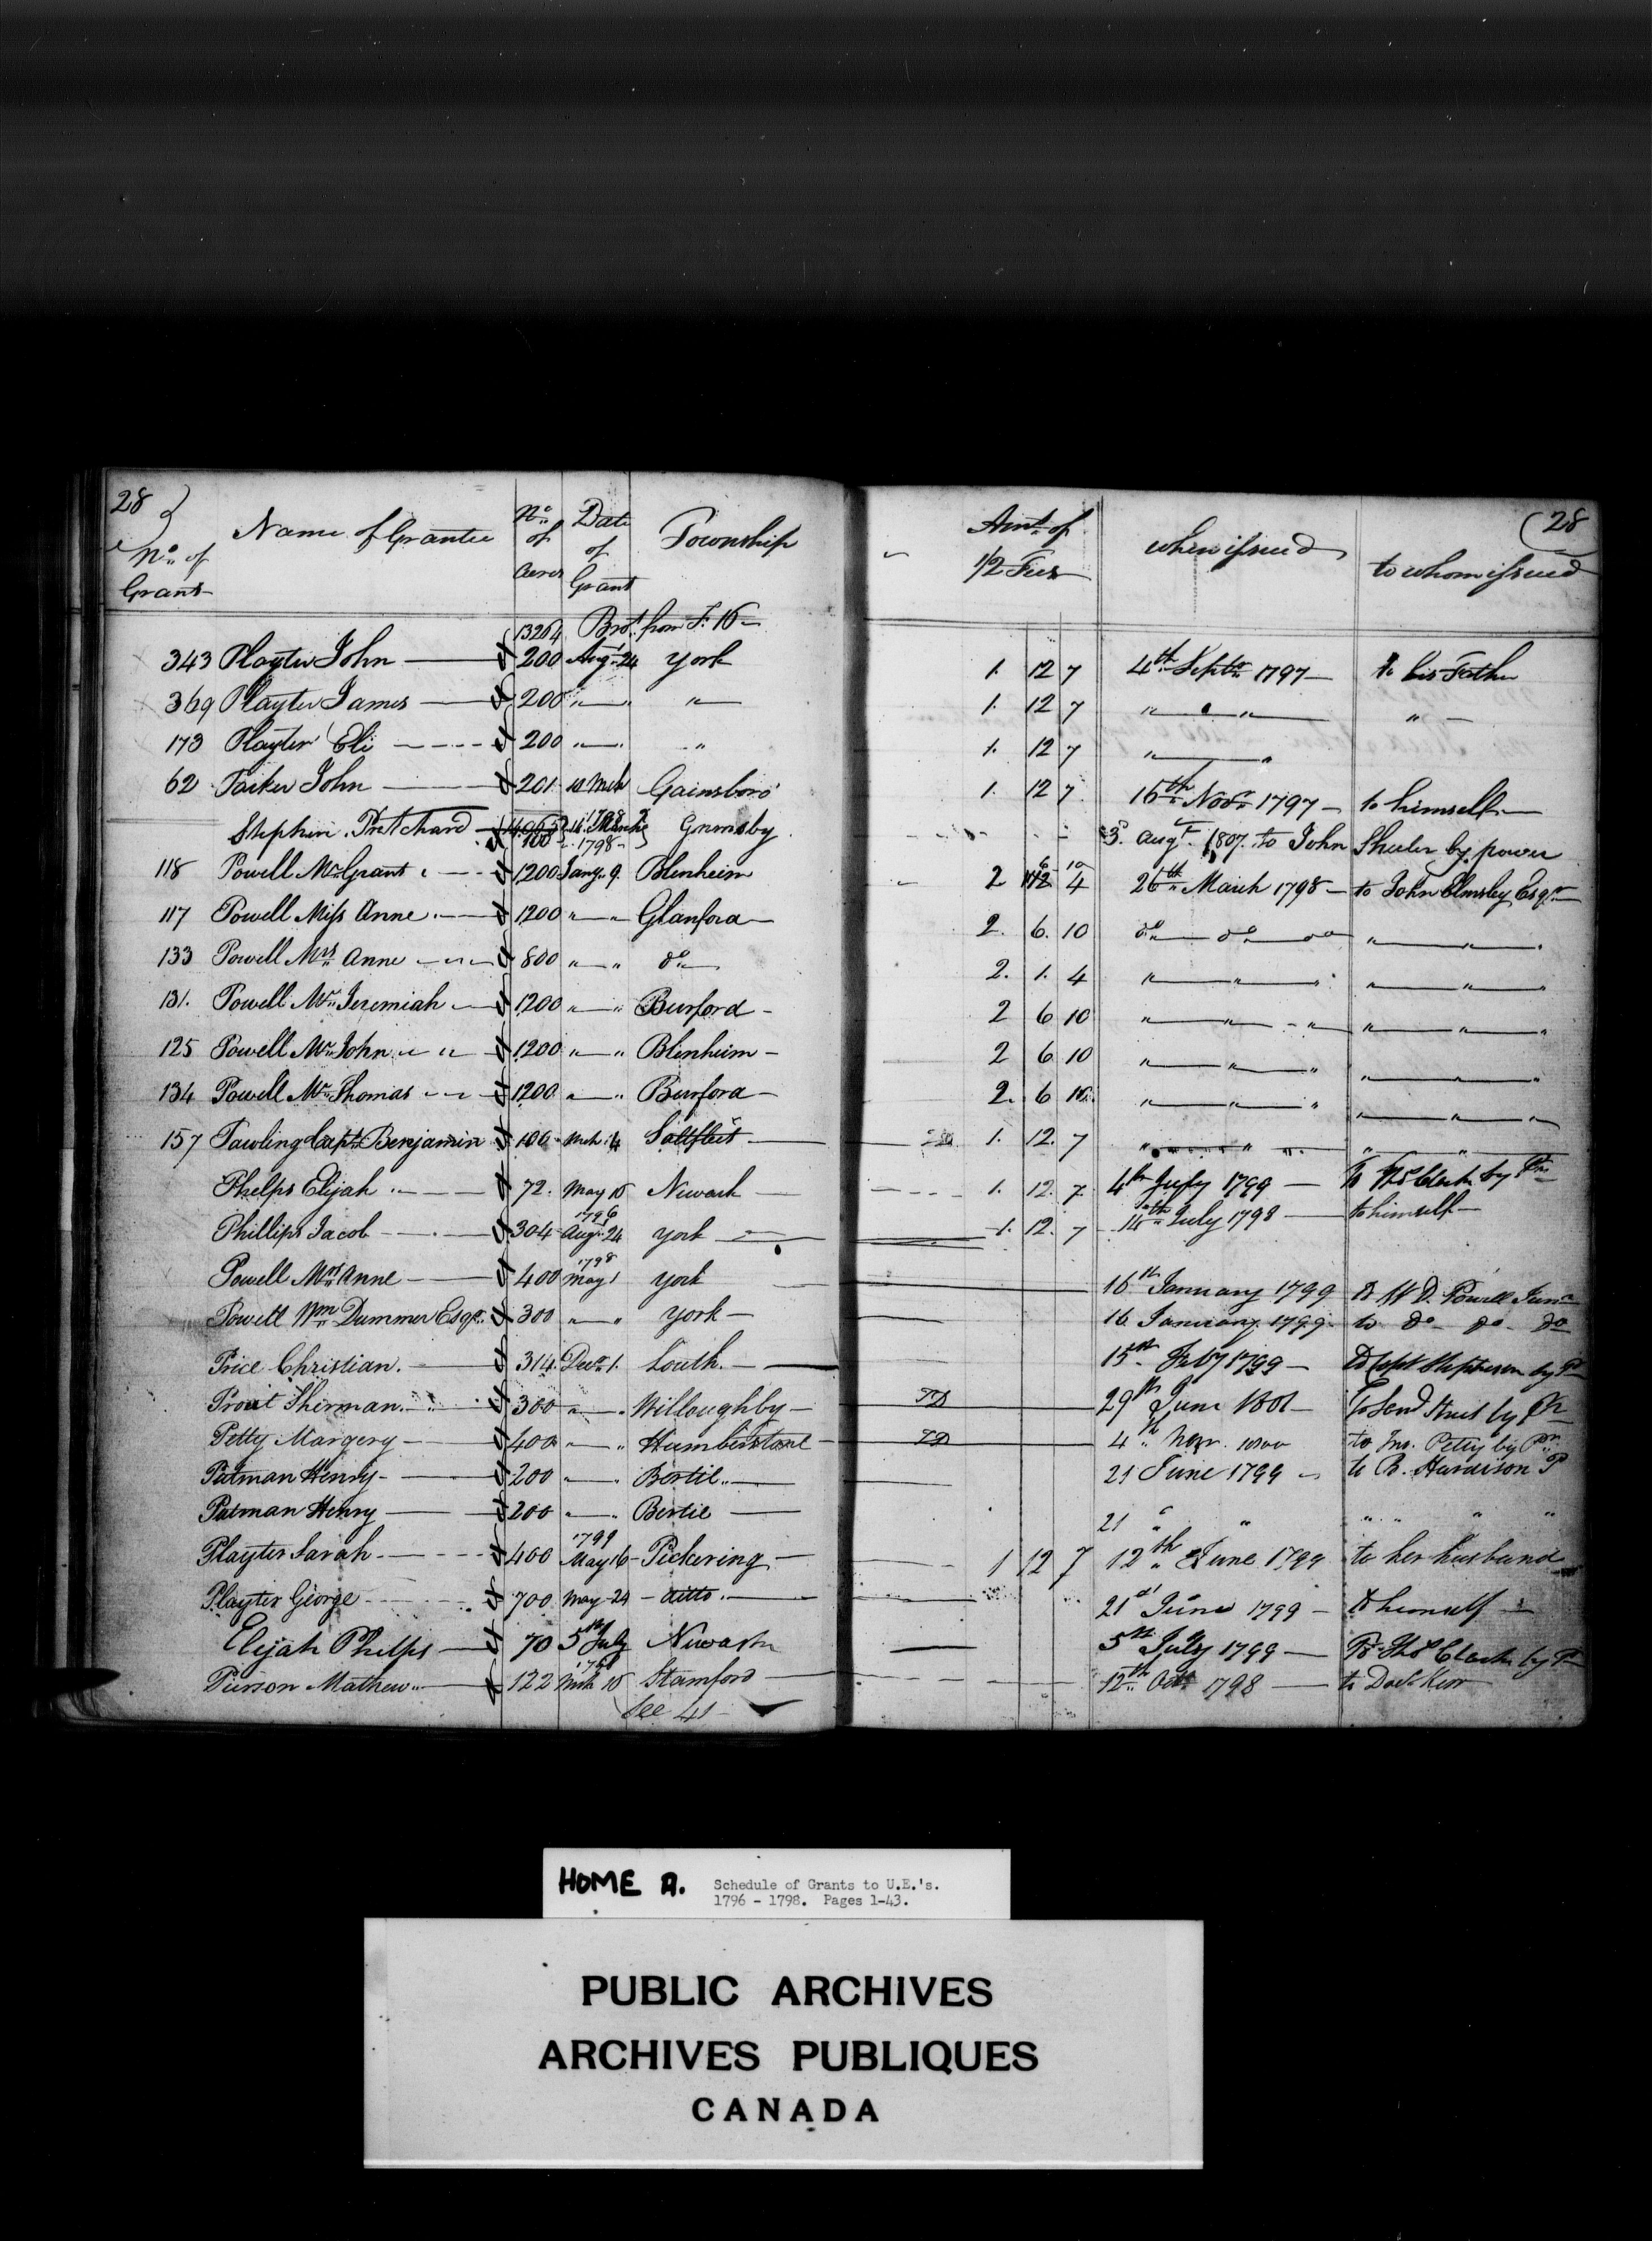 28
No. of Grant
Name of Grantee
No. of Acres
Date of Grant
Township
Amt. of 1/2 Fees
when issued
to whom issued
28
13264 Brot. from F. 16
343 Playter John 200 Augt. 24 York 1. 12 7 4th Septr. 1797 to his Father
369 Playter James 200 " " " 1. 12 7 " " "
173 Playter Eli 200 " " 1. 12 7 " "
62 Parker John 201 10 Mch Gainsboro' 1. 12 7 16th Novr. 1797 to himself
Stephen Pritchard 100 16 March 1798 Grimsby 3d. Augt. 1807 to John Sheeler by power
118 Powell Mr. Grant 1200 Jany. 9. Blenheim 2 6 10 26th March 1798 to John Elmsley Esqr.
117 Powell Miss Anne 1200 " " Glanford 2. 6. 10 do do do " " "
133 Powell Mrs. Anne 800 " " do 2. 1. 4 " " " " " "
131. Powell Mr. Jeremiah 1200 " " Burford 2 6 10 " " " " " "
125 Powell Mr. John 1200 " " Blenheim 2 6 10 " " " " " "
134 Powell Mr. Thomas 1200 " " Burford 2. 6 10 " " " " " "
157 Pawling Capt. Benjamin 100 Mch. 4 Saltfleet 1. 12. 7 " " " " "
Phelps Elijah 72. May 15 Newark 1. 12. 7 4th July 1799 To Thos Clark by Pr.
Phillips Jacob 304 1796 Augt. 24 York 1. 12. 7 14th July 1798 to himself
Powell Mrs. Anne 400 1798 May 1 York 16th January 1799 To W D. Powell Junr.
Powell Wm. Dummer Esqr. 300 " " York 16 January 1799 to do do do
Price Christian. 314 Decr. 1. Louth 15th Feby 1799 To Capt Stephenson by Pr
Prout Sherman 300 " Willoughby TD 29th June 1801 To Saml Street by Pr
Petty Margery 400 " " Humberstone TD 4th Novr. 1800 to Jno. Petty by Pr.
Putman Henry 200 " " Bertie 21 June 1799 to B. Hardison P
Putman Henry 200 " " Bertie 21 " " " " "
Playter Sarah 400 1799 May 16 Pickering 1 12 7 12th June 1799 to her husband
Playter George 700 May 24 ditto 21st June 1799 To himself
Elijah Phelps 70 5th July Newark 5th July 1799 To Thos Clark by Pr
Pierson Mathew 122 Mch 10 Stamford 12th Octr. 1798 to Docr. Kerr
See 41
HOME A. Schedule of Grants to U.E.'s.
1796 - 1798. Pages 1-43.
PUBLIC ARCHIVES
ARCHIVES PUBLIQUES
CANADA